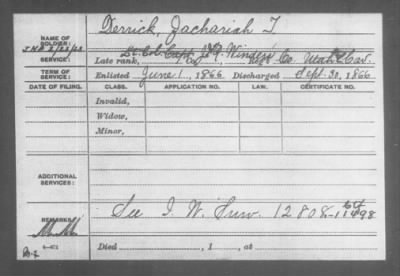 NAME OF SOLDIER: Derrick, Zachariah T,
SERVICE: Lt. Col. Capt. Winder's Co. Utah Cav.
Late rank,
TERM OF SERVICE: Enlisted June 1, 1866 Discharged Sept. 30, 1866
DATE OF FILING. CLASS. APPLICATION NO. LAW. CERTIFICATE NO.
Invalid,
Widow,
Minor,
ADDITIONAL SERVICES:
See I. W. Surv. 12808-11498
REMARKS:
Died , 1 , at